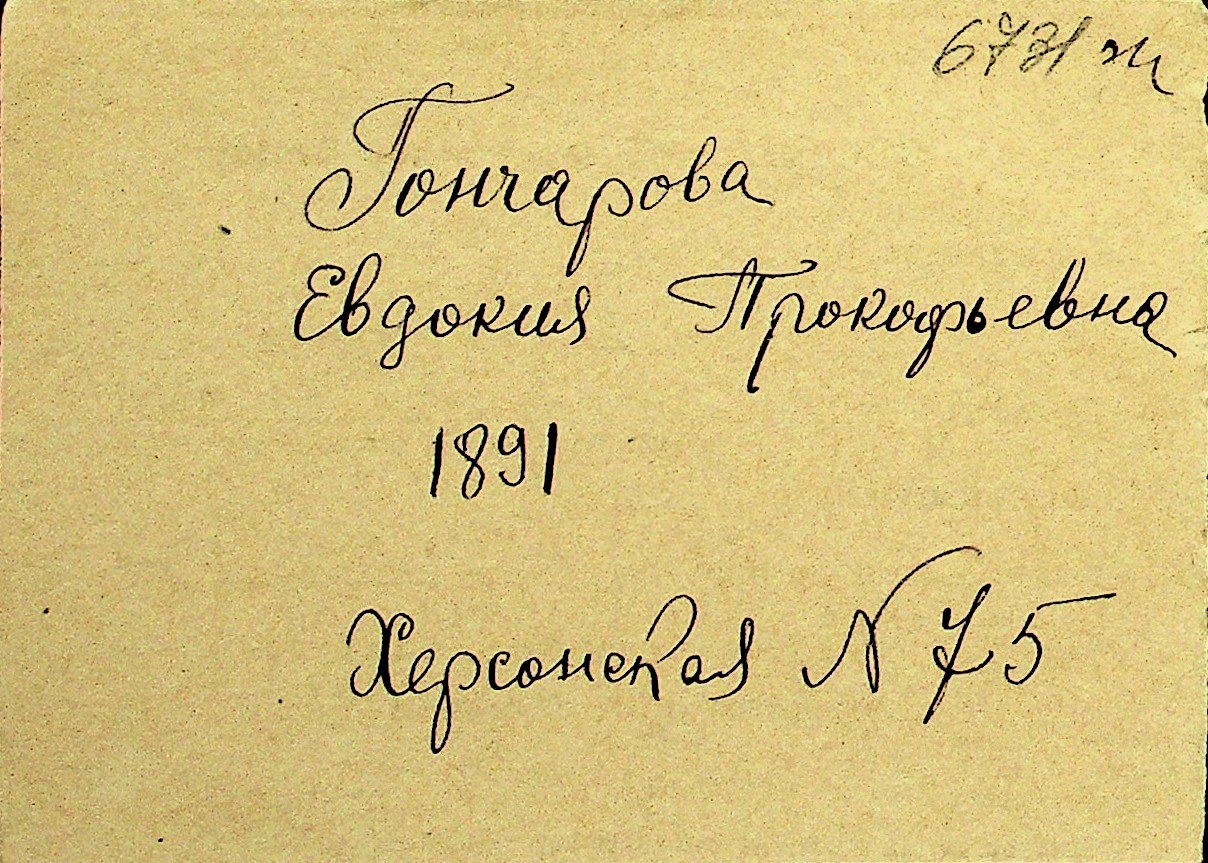 6731 ж
Гончарова
Евдокия Прокофьевна
1891
Херсонская N 75